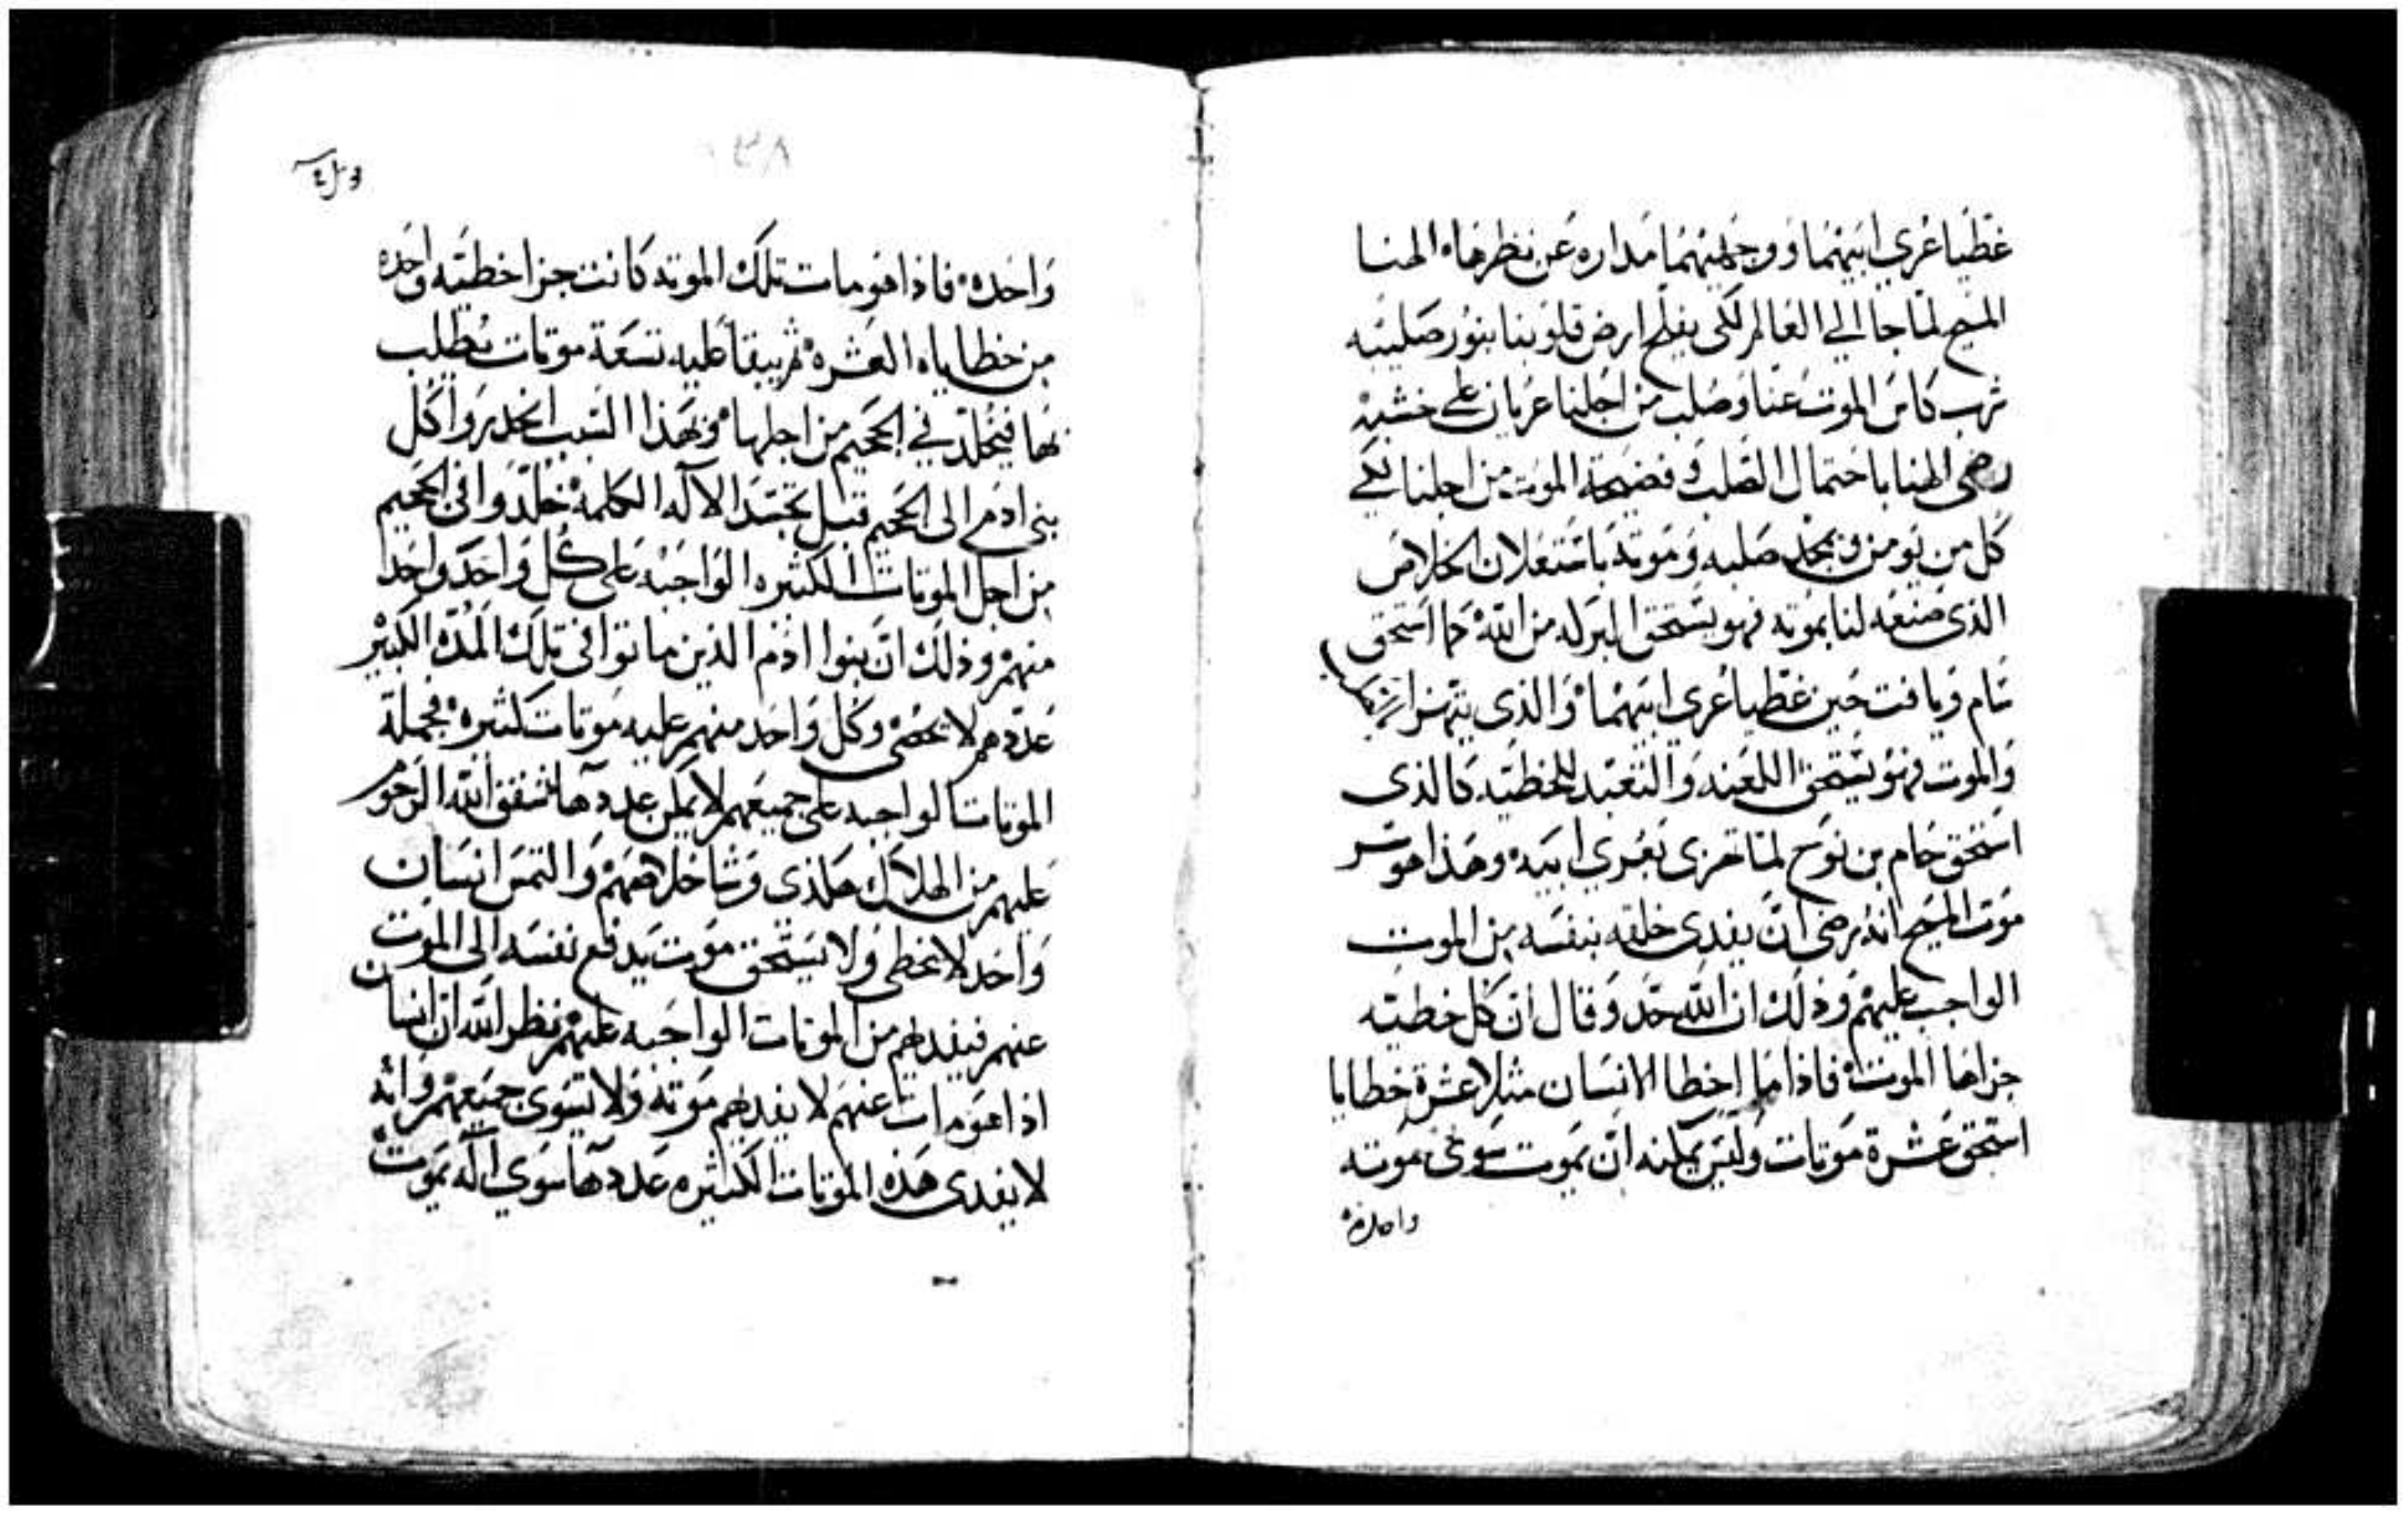 غطيا عري ابيهما ووجهيهما مداره عن نظرهاه الهنا
المسيح لما جا الي العالم لكي يفلح ارض قلوبنا بنور صليبه
شرب كاس الموت عنا وصلب من اجلنا عريان على خشبه
رضي الهنا باحتمال الصلب وفضيحة الموت من اجلنا لكي
كل من يومن ويمجد صليبه وموته باستعلان الخلاص
الذي صنعه لنا بموته فهو يستحق البركه من الله كما استحق
سام ويافت حين غطيا عري ابيهما والذي
والموت فهو يستحق اللعنه والتعبد للخطيه كالذي
استحق حام بن نوح لما تهزى بعري ابيه وهذا هو سر
موت المسيح انه رضي ان يفدى خلقه بنفسه من الموت
الواجب عليهم وذلك ان الله حد وقال ان كل خطيه
جزاها الموت فاذا ما اخطا الانسان مثلا عشرة خطايا
استحق عشرة موتات وليس يمكنه ان يموت سوى موته
واحده
٣٨
واحده فاذا هو مات تلك الموته كانت جزا خطيه واحده
من خطاياه العشره ثم يبقا عليه تسعة موتات يطلب
بها فيخلد في الجحيم من اجلها وبهذا السبب انحدروا كل
بني ادم الى الجحيم قبل تجسد الاله الكلمه خلدوا في الجحيم
من اجل الموتات الكثيره الواجبه على كل واحد واحد
منهم وذلك ان بنوا ادم الذين ماتوا في تلك المده الكبير
عددهم لا يحصى وكل واحد منهم عليه موتات كثيره فجملة
الموتات الواجبه على جميعهم لا يمكن عددها شفق الله الرحوم
عليهم من الهلاك هكذى وشا خلاصهم والتمس انسان
واحد لا يخطي ولا يستحق موت يدفع نفسه الى الموت
عنهم فيفديهم من الموتات الواجبه عليهم نظر الله ان انسان
اذا هو مات عنهم لا يفديهم موته ولا يسوى جميعهم وانه
لا يفدى هذه الموتات الكثيره عددها سوي اله يموت